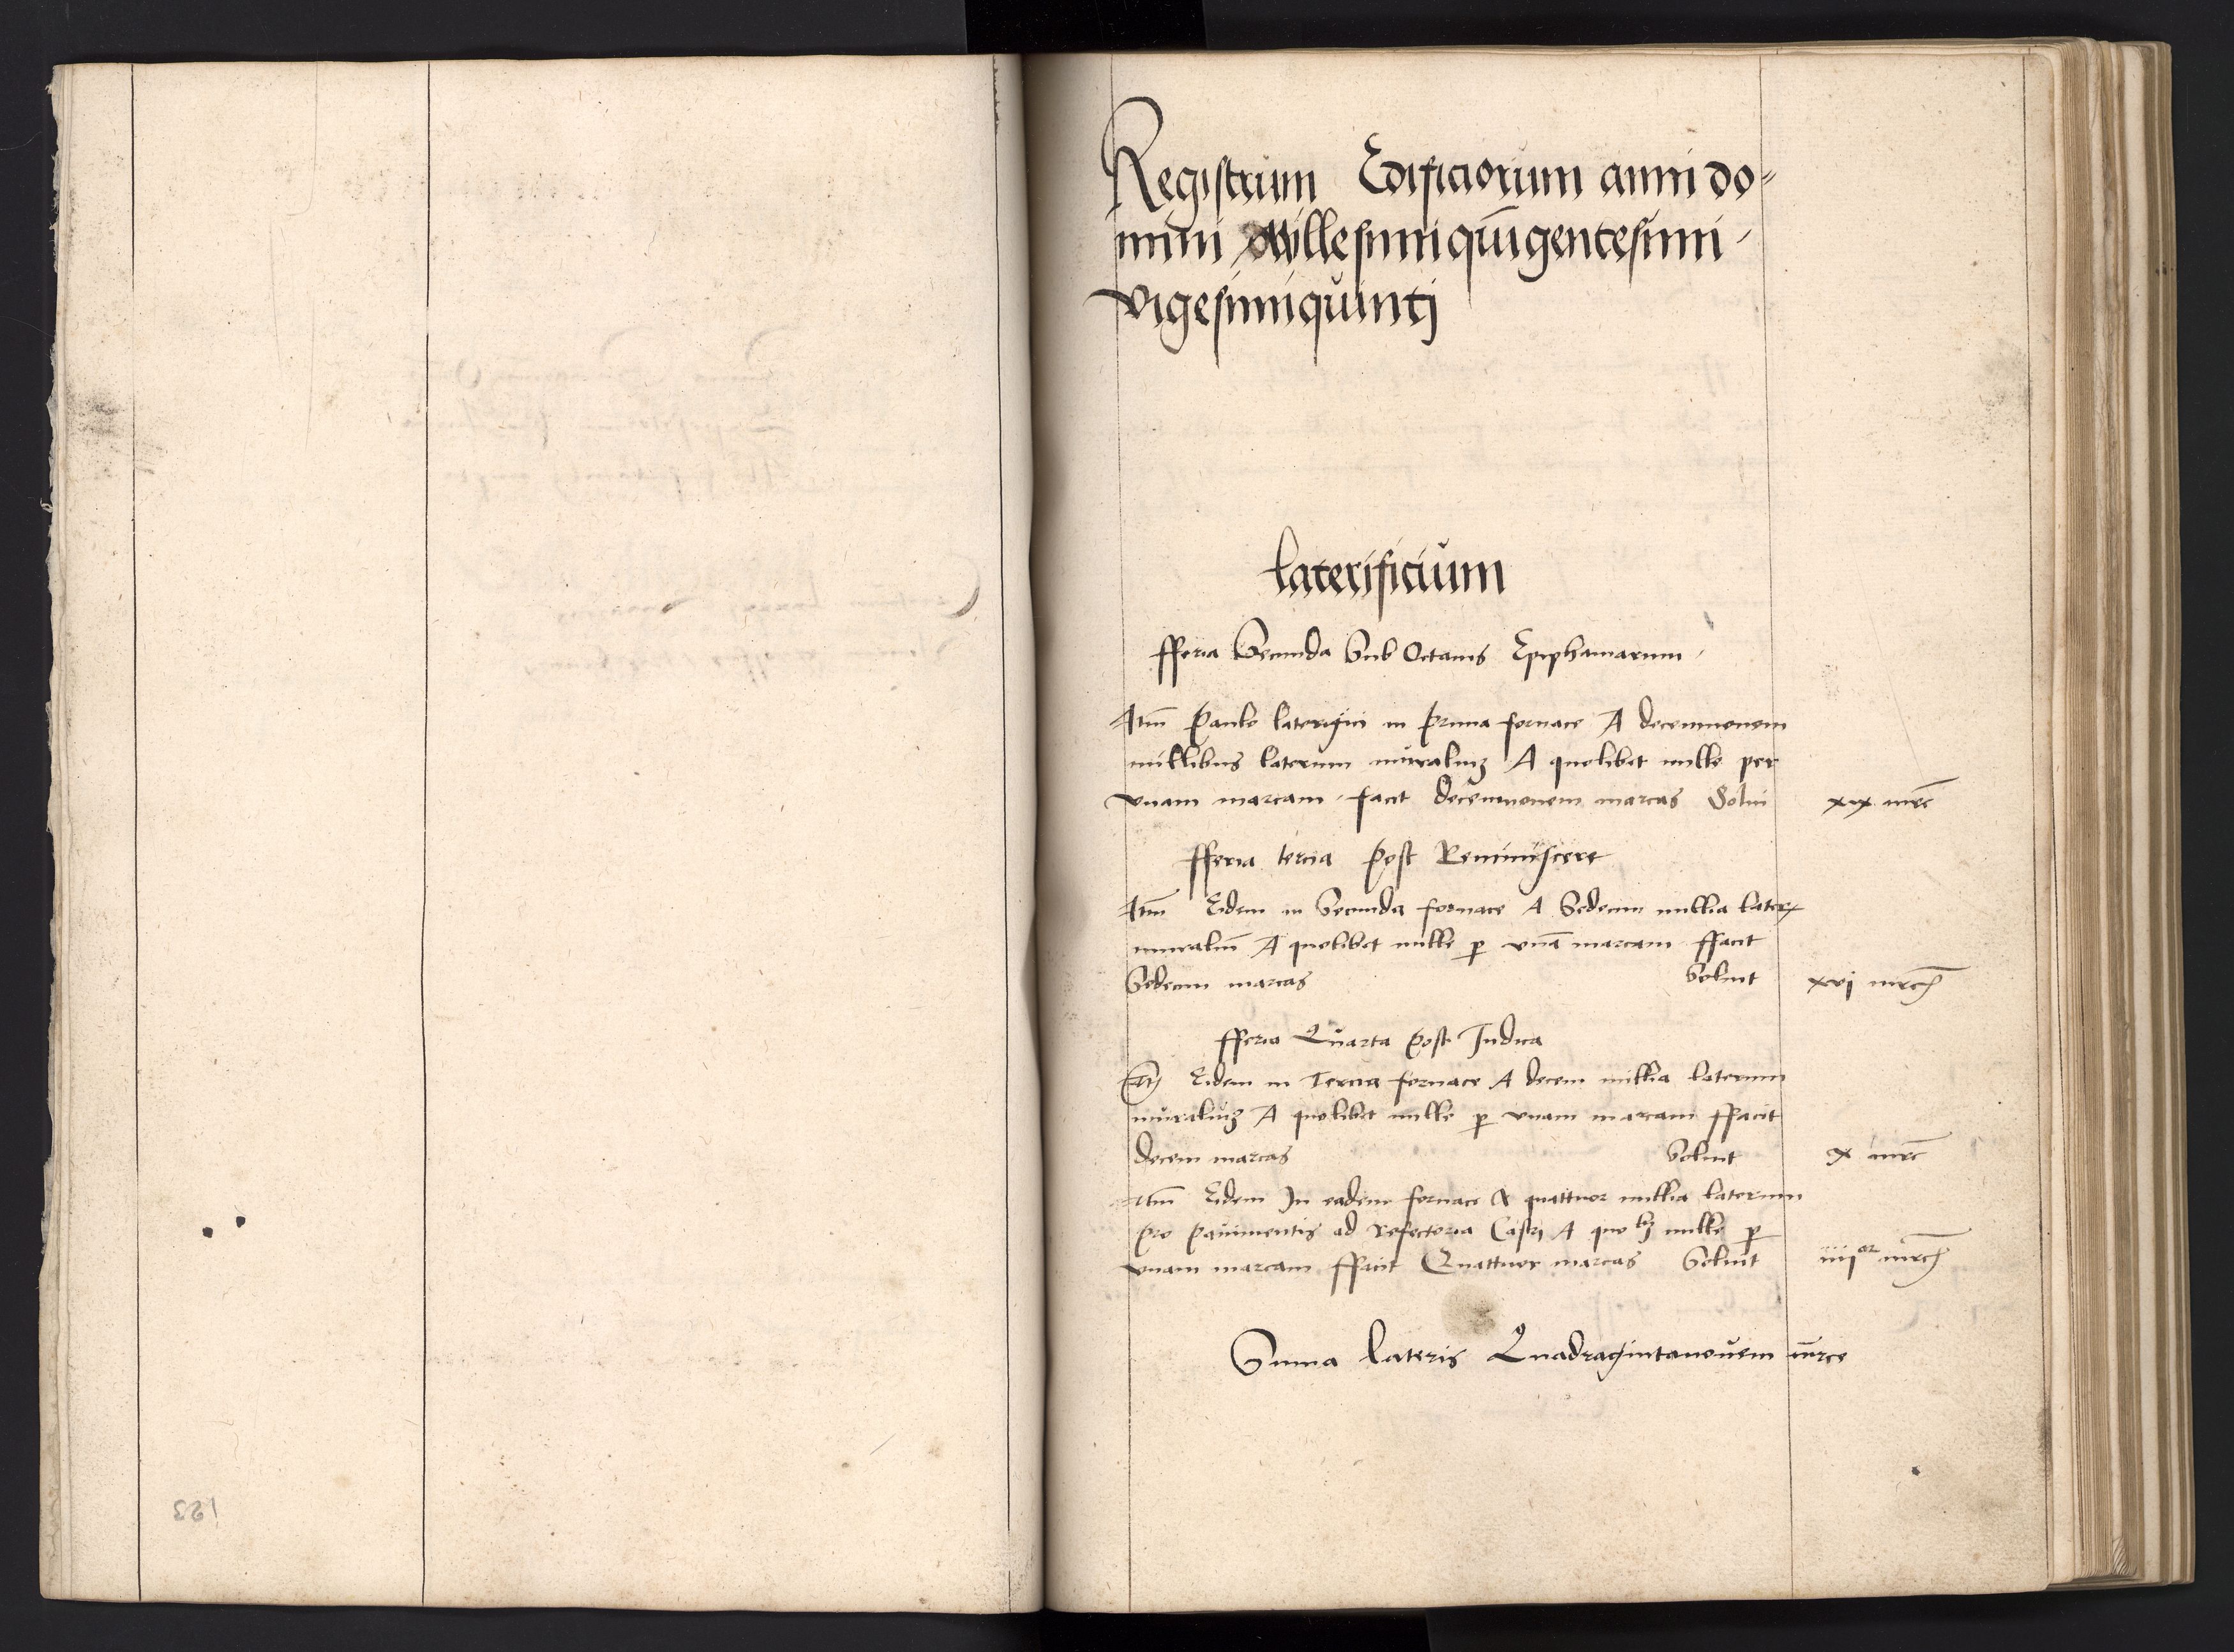 Registrum Edificiorum anni do=
mini Millesimiquīgentesimi
vigesimiquintj
laterificium
fferia Secunda Sub Octauis Epiphaniarum
Itm̄ Paulo laterifici in prima fornace A decemnouem
millibus laterum muraliuȝ A quolibet mille per
vnam marcam facit decemnouem marcas Solui
xix mrc̄
fferia tercia post Reminiscere
Itm̄ Eidem in Secunda fornace A Sedecim millia later
muraliū A quolibet mille p vnā marcam ffacit
Sedecim marcas Soluit
xvj mrc̄
fferia Quarta post Iudica
Itm̄ Eidem in Tercia fornace A decem millia laterum
muraliuȝ A quolibet mille p vnam marcam ffacit
decem marcas Soluit
x mrc̄
Itm̄ Eidem In eadem fornace A quattuor millia laterum
pro pauimentis ad refectoria Castrj A quolȝ mille p
vnam marcam ffacit Quattuor marcas Soluit
iiijor mrc̄
Suma lateris Quadragintanouem mrce
123